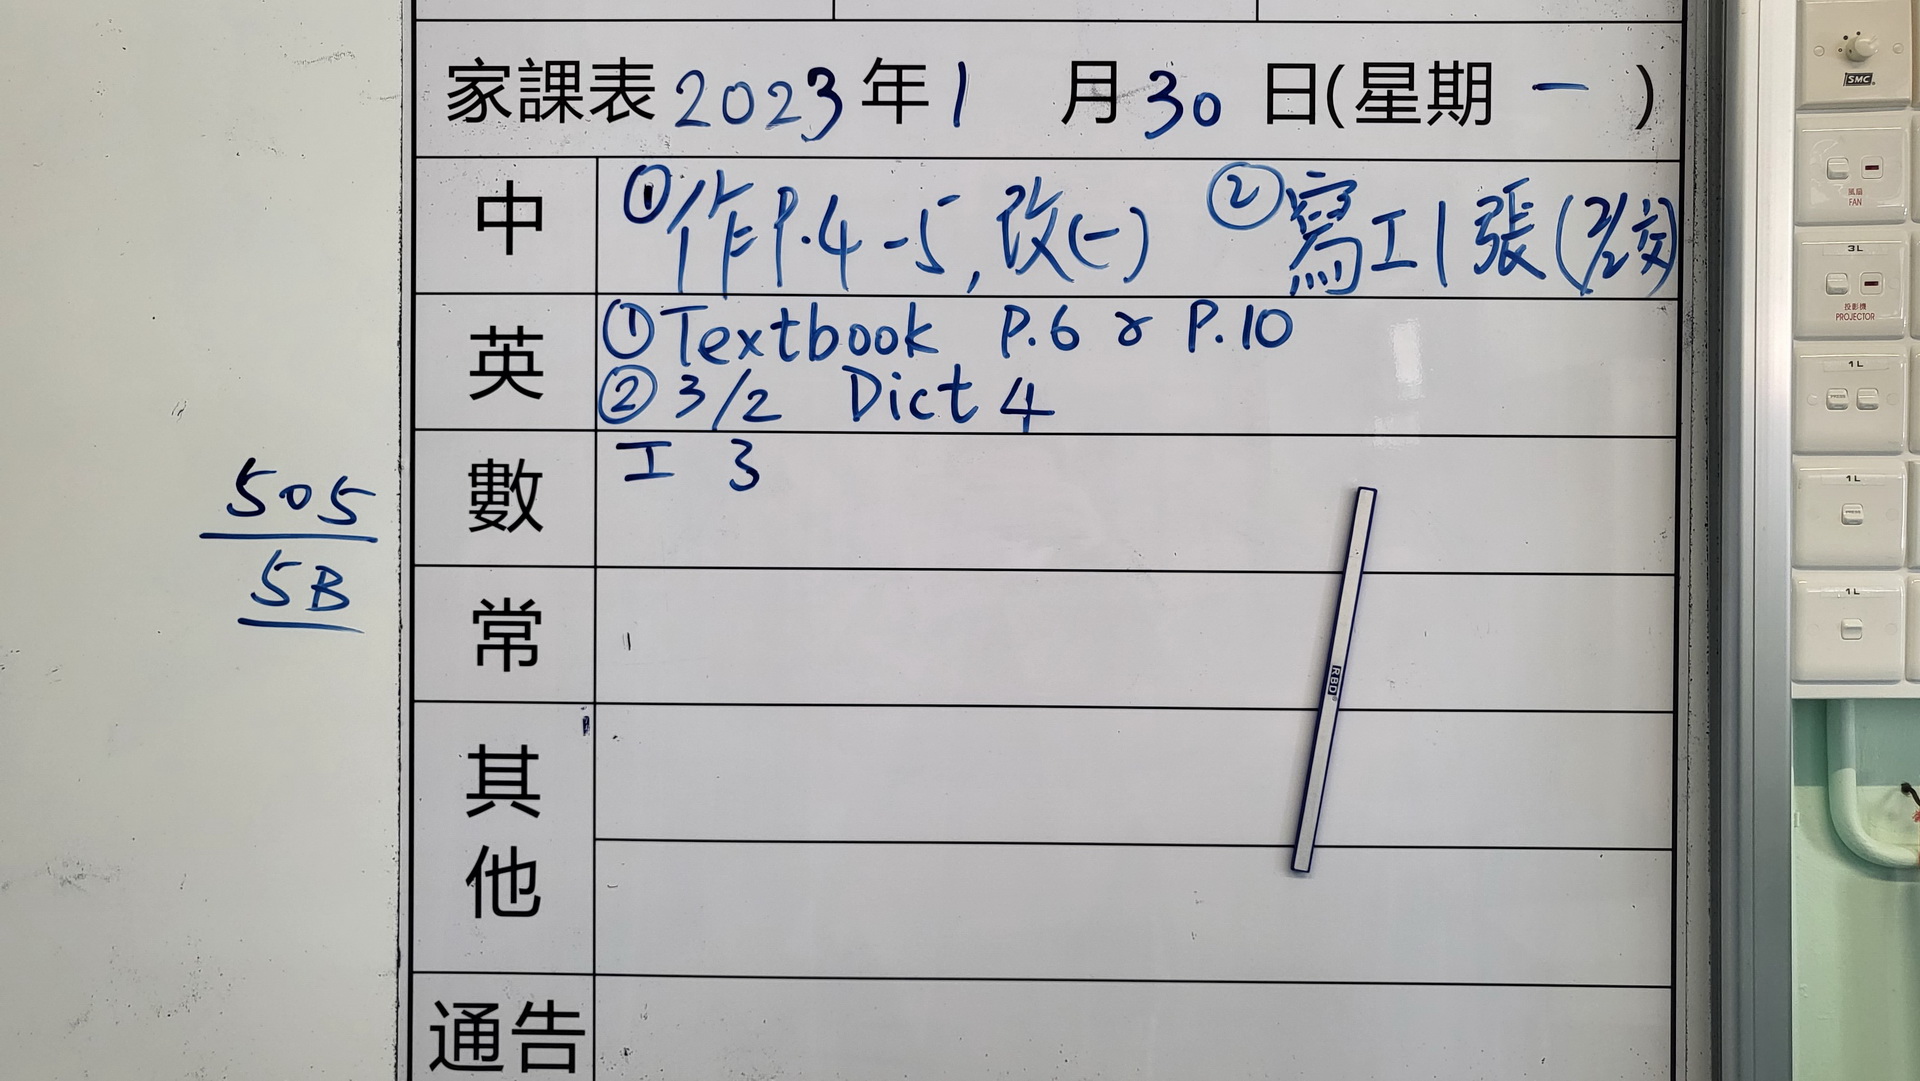 家課表 2023 年 1 月 30 日(星期 一 )
中 ①作P.4-5, 改(一) ②寫工1張(2/2交)
英 ①Textbook P.6 & P.10
②3/2 Dict 4
數 工 3
常
其他
通告
505
5B
RBD
SMC
風扇
FAN
3L
投影機
PROJECTOR
1L
PRESS
PRESS
1L
PRESS
1L